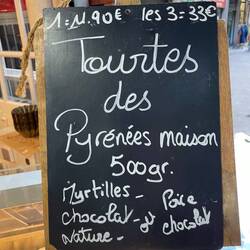 1=11.90€ les 3=33€
Tourtes
des
Pyrénées maison
500gr.
Myrtilles -
chocolat - Poire
Nature - chocolat